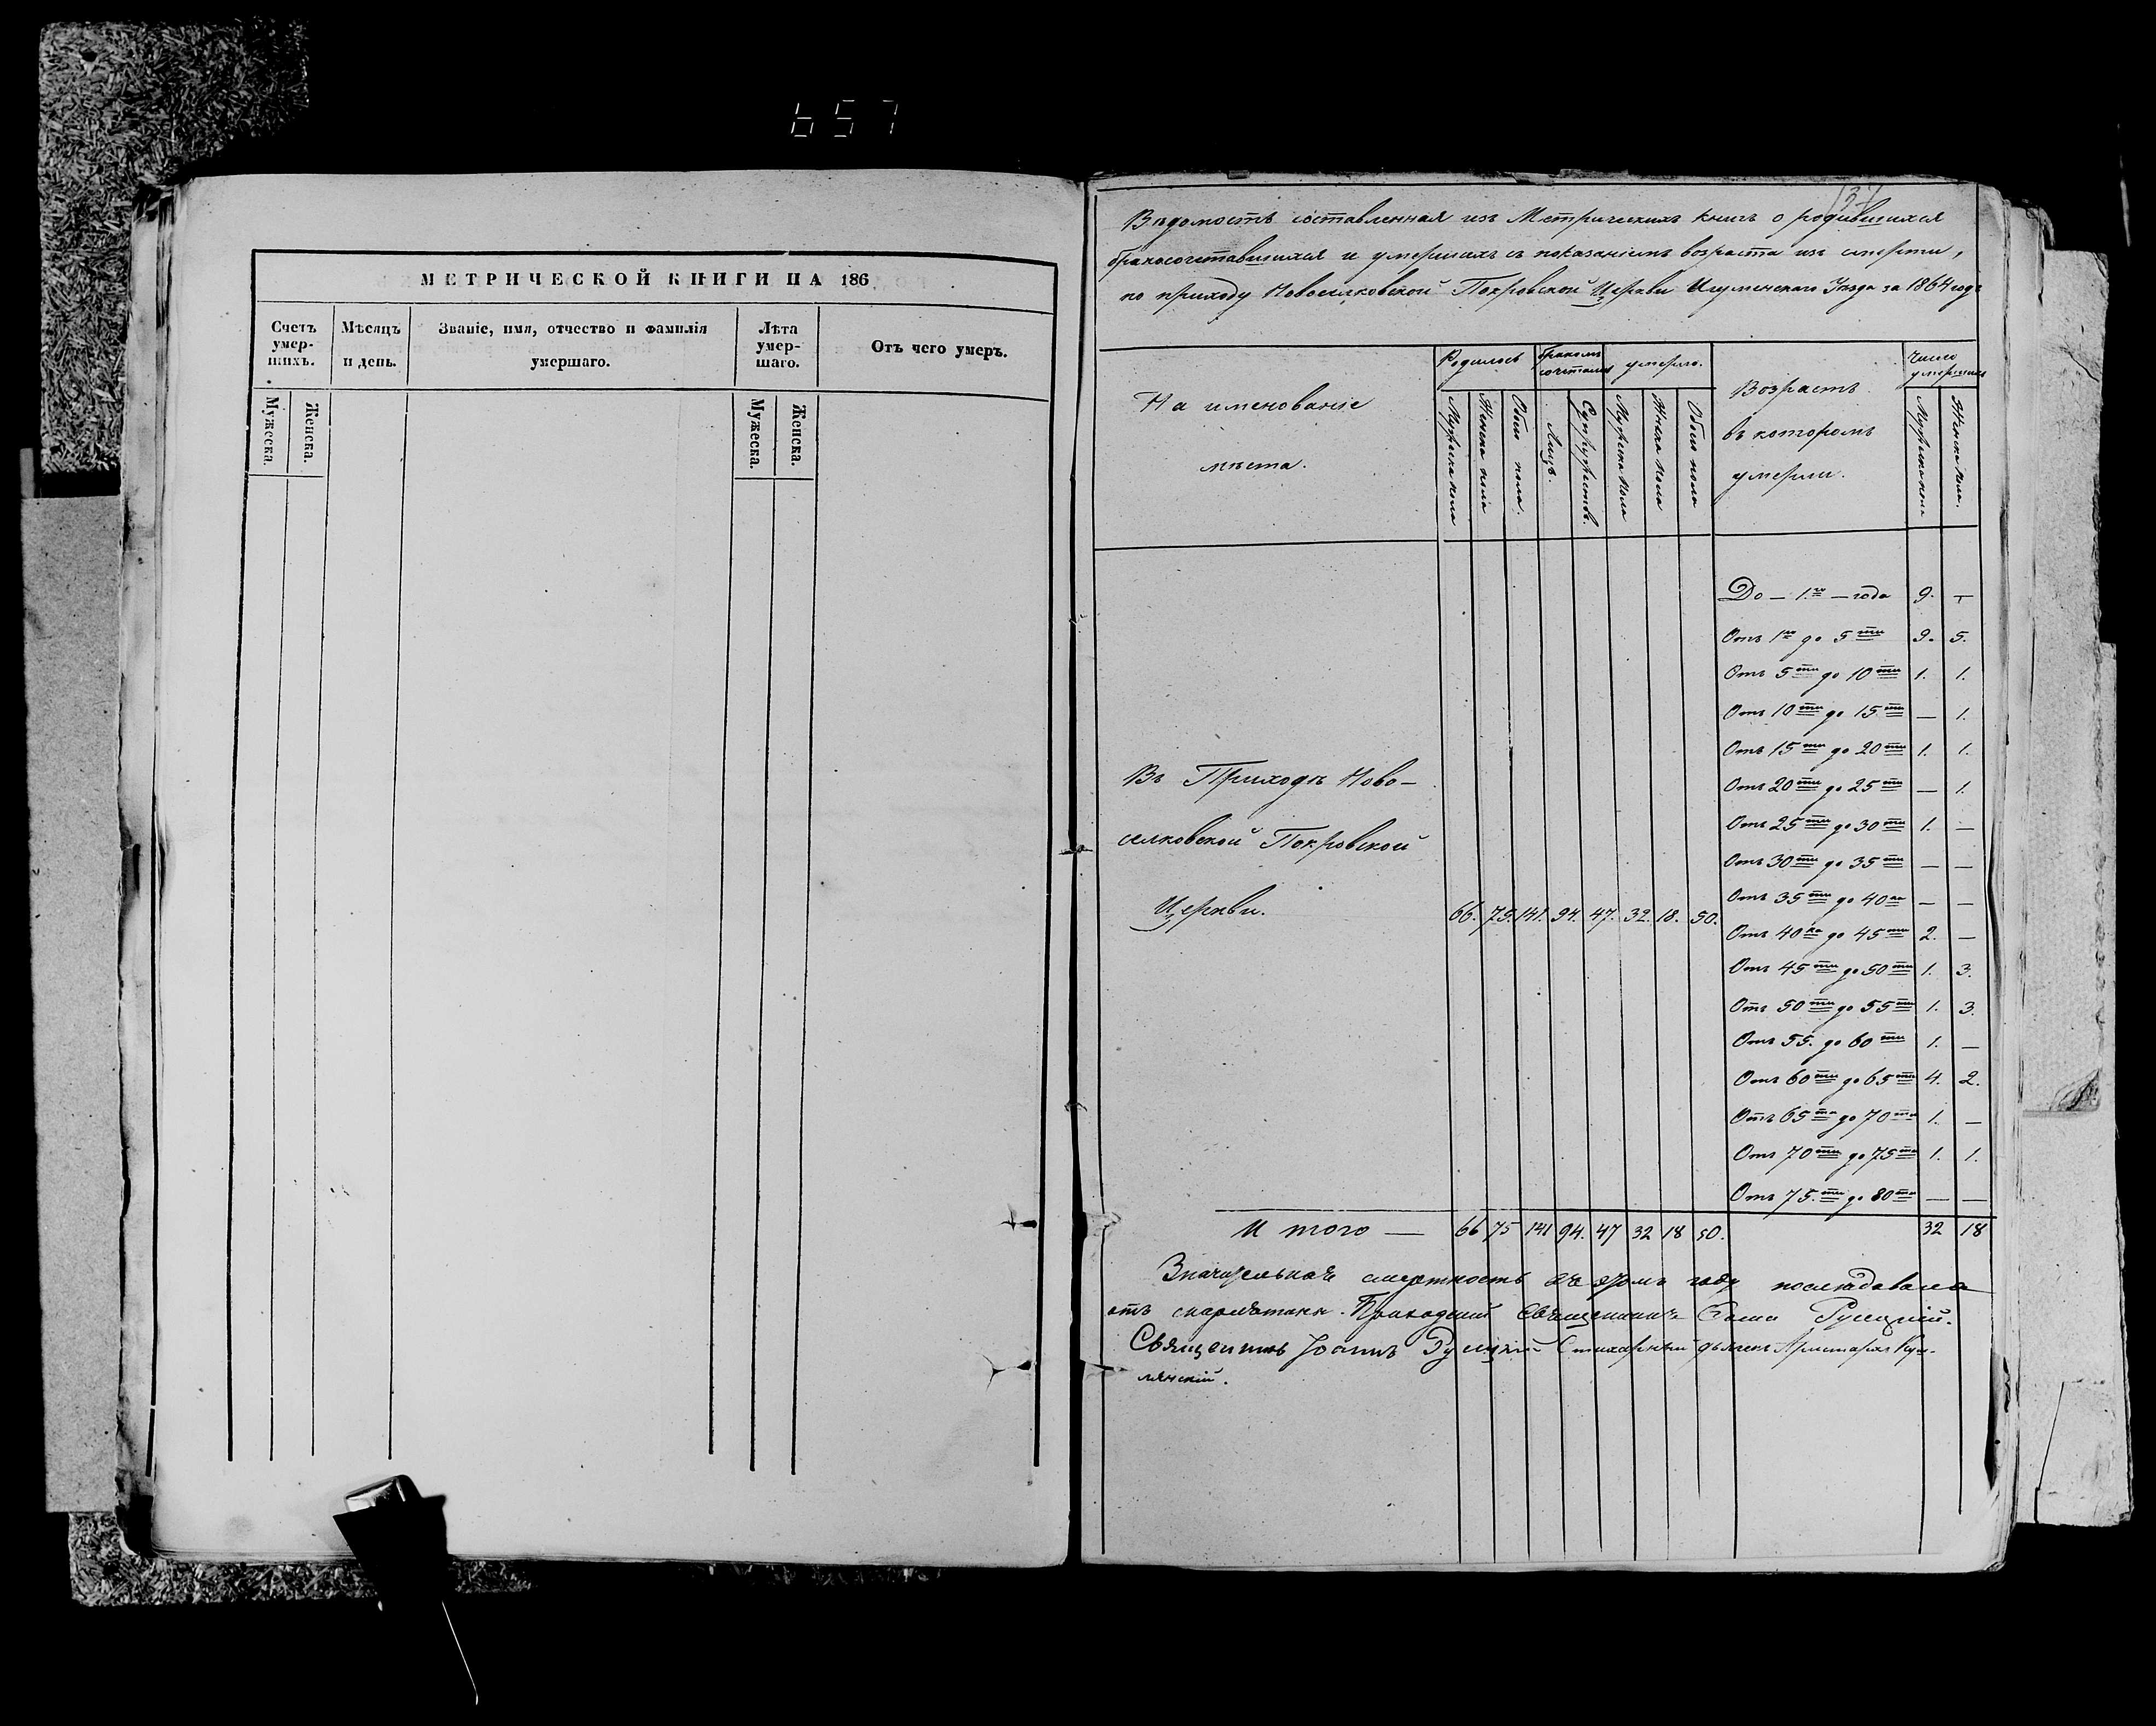 657
МЕТРИЧЕСКОЙ КНИГИ НА 186
Счетъ умер-шихъ.
Мѣсяцъ и день.
Званіе, имя, отчество и фамилія умершаго.
Лѣта умер-шаго.
Отъ чего умеръ.
Мужеска.
Женска.
Мужеска.
Женска.
Вѣдомость составленная изъ Метрическихъ книгъ о родившихся
бракосочетавшихся и умершихъ съ показаніемъ возраста изъ смерти,
по приходу Новоселковской Покровской Церкви Игуменскаго Уѣзда за 1864 годъ
На именованіе мѣста.
Родилось
бракомъ сочеталось
умерло.
Возрастъ въ которомъ умерли.
Число умершихъ
Мужеска пола
Женска пола
Обоего пола.
Лицъ.
Супружествъ.
Мужеска пола
Женска пола
Обоего пола
Мужеска пола
Женска пола.
До — 1го — года 9. —
Отъ 1го до 5ти 9. 5.
Отъ 5ти до 10ти 1. 1.
Отъ 10ти до 15ти — 1.
Отъ 15ти до 20ти 1. 1.
Отъ 20ти до 25ти — 1.
Отъ 25ти до 30ти 1. —
Отъ 30ти до 35ти — —
Отъ 35ти до 40ка — —
Отъ 40ка до 45ти 2. —
Отъ 45ти до 50ти 1. 3.
Отъ 50ти до 55ти 1. 3.
Отъ 55. до 60ти 1. —
Отъ 60ти до 65ти 4. 2.
Отъ 65ти до 70ти 1. —
Отъ 70ти до 75ти 1. 1.
Отъ 75.ти до 80ти — —
Въ Приходѣ Ново-
селковской Покровской
Церкви. 66. 75. 141. 94. 47. 32. 18. 50.
И того — 66 75 141 94. 47 32 18 50. 32 18
Значительная смертность въ этомъ году послѣдовала
отъ скарлатины. Приходскій Священникъ Ѳома Русецкій.
Священникъ Іоаннъ Русецкій Стихарный дьячекъ Аристархъ